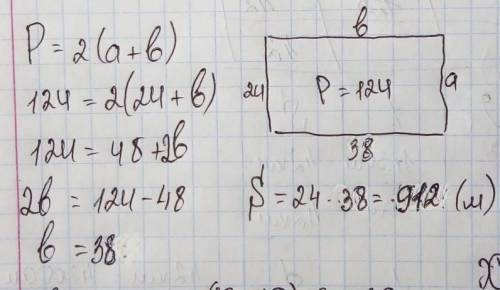 P = 2(a+b)
124 = 2(24+b)
124 = 48+2b
2b = 124-48
b = 38
b
24
P = 124
a
38
S = 24 · 38 = 912 (м)